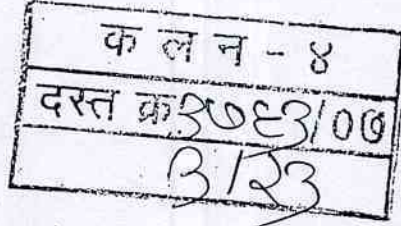 क ल न - ४
दस्त क्र ३७६३/०७
३/२३